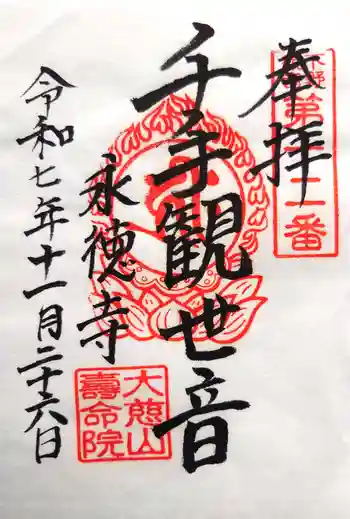 奉拝
下野
第十二番
千手観世音
永徳寺
大慈山
壽命院
令和七年十一月二十六日